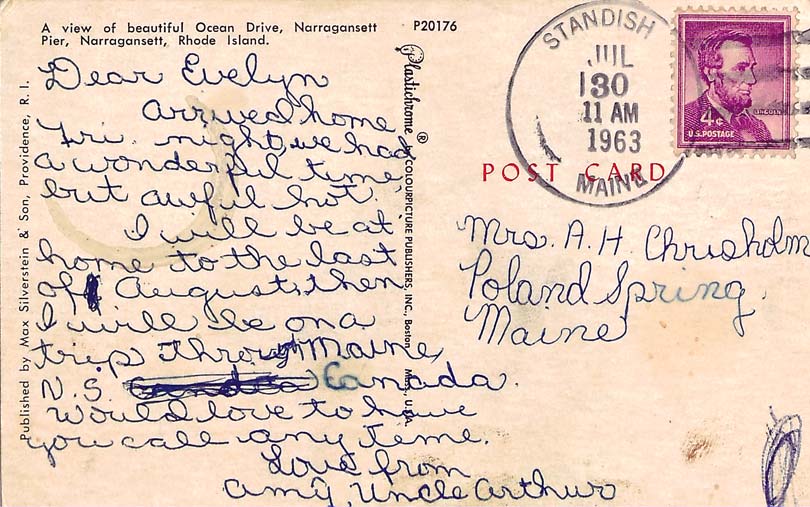 A view of beautiful Ocean Drive, Narragansett
Pier, Narragansett, Rhode Island.
P20176
Dear Evelyn
Arrived home
Fri. night, we had
a wonderful time
but awful hot.
I will be at
home to the last
of August, then
I will be on a
trip through Maine,
N.S. Canada.
Would love to have
you call any teme.
Love from
Amy, Uncle Arthur
Published by Max Silverstein & Son, Providence, R. I.
Plastichrome ® by COLOURPICTURE PUBLISHERS, INC., Boston, Mass., U.S.A.
STANDISH
JUL
30
11 AM
1963
MAINE
LINCOLN
4¢
U.S. POSTAGE
POST CARD
Mrs. A. H. Chrisholm
Poland Spring,
Maine